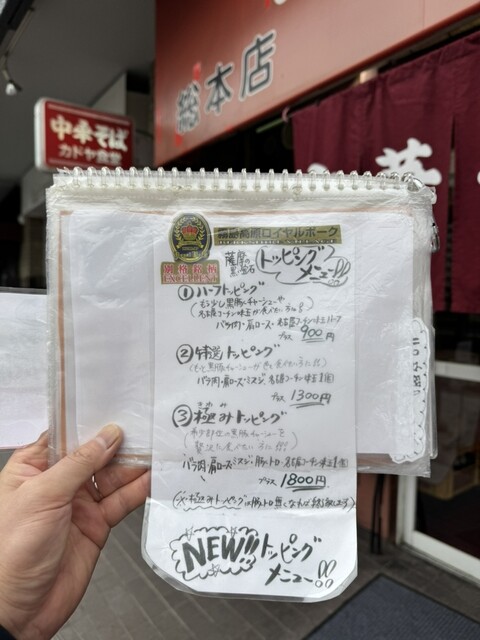 総本店
中華そば
カドヤ食堂
霧島高原ロイヤルポーク
別格銘柄
EXCELLENT
薩摩の
黒宝石
トッピング
メニュー!!
①ハーフトッピング
(もう少し黒豚チャーシューや
名古屋コーチン味玉が食べたい方に!!)
バラ肉・肩ロース・名古屋コーチン味玉ハーフ
プラス 900円
②特選トッピング
バラ肉・肩ロース・ミスジ・名古屋コーチン味玉1個
プラス 1300円
きわ
③極みトッピング
(希少部位の黒豚チャーシューを
贅沢に食べたい方に!!)
バラ肉・肩ロース・ミスジ・豚トロ・名古屋コーチン味玉1個
プラス 1800円
(※極みトッピングは豚トロ無くなれば終了致します)
NEW!! トッピング
メニュー!!